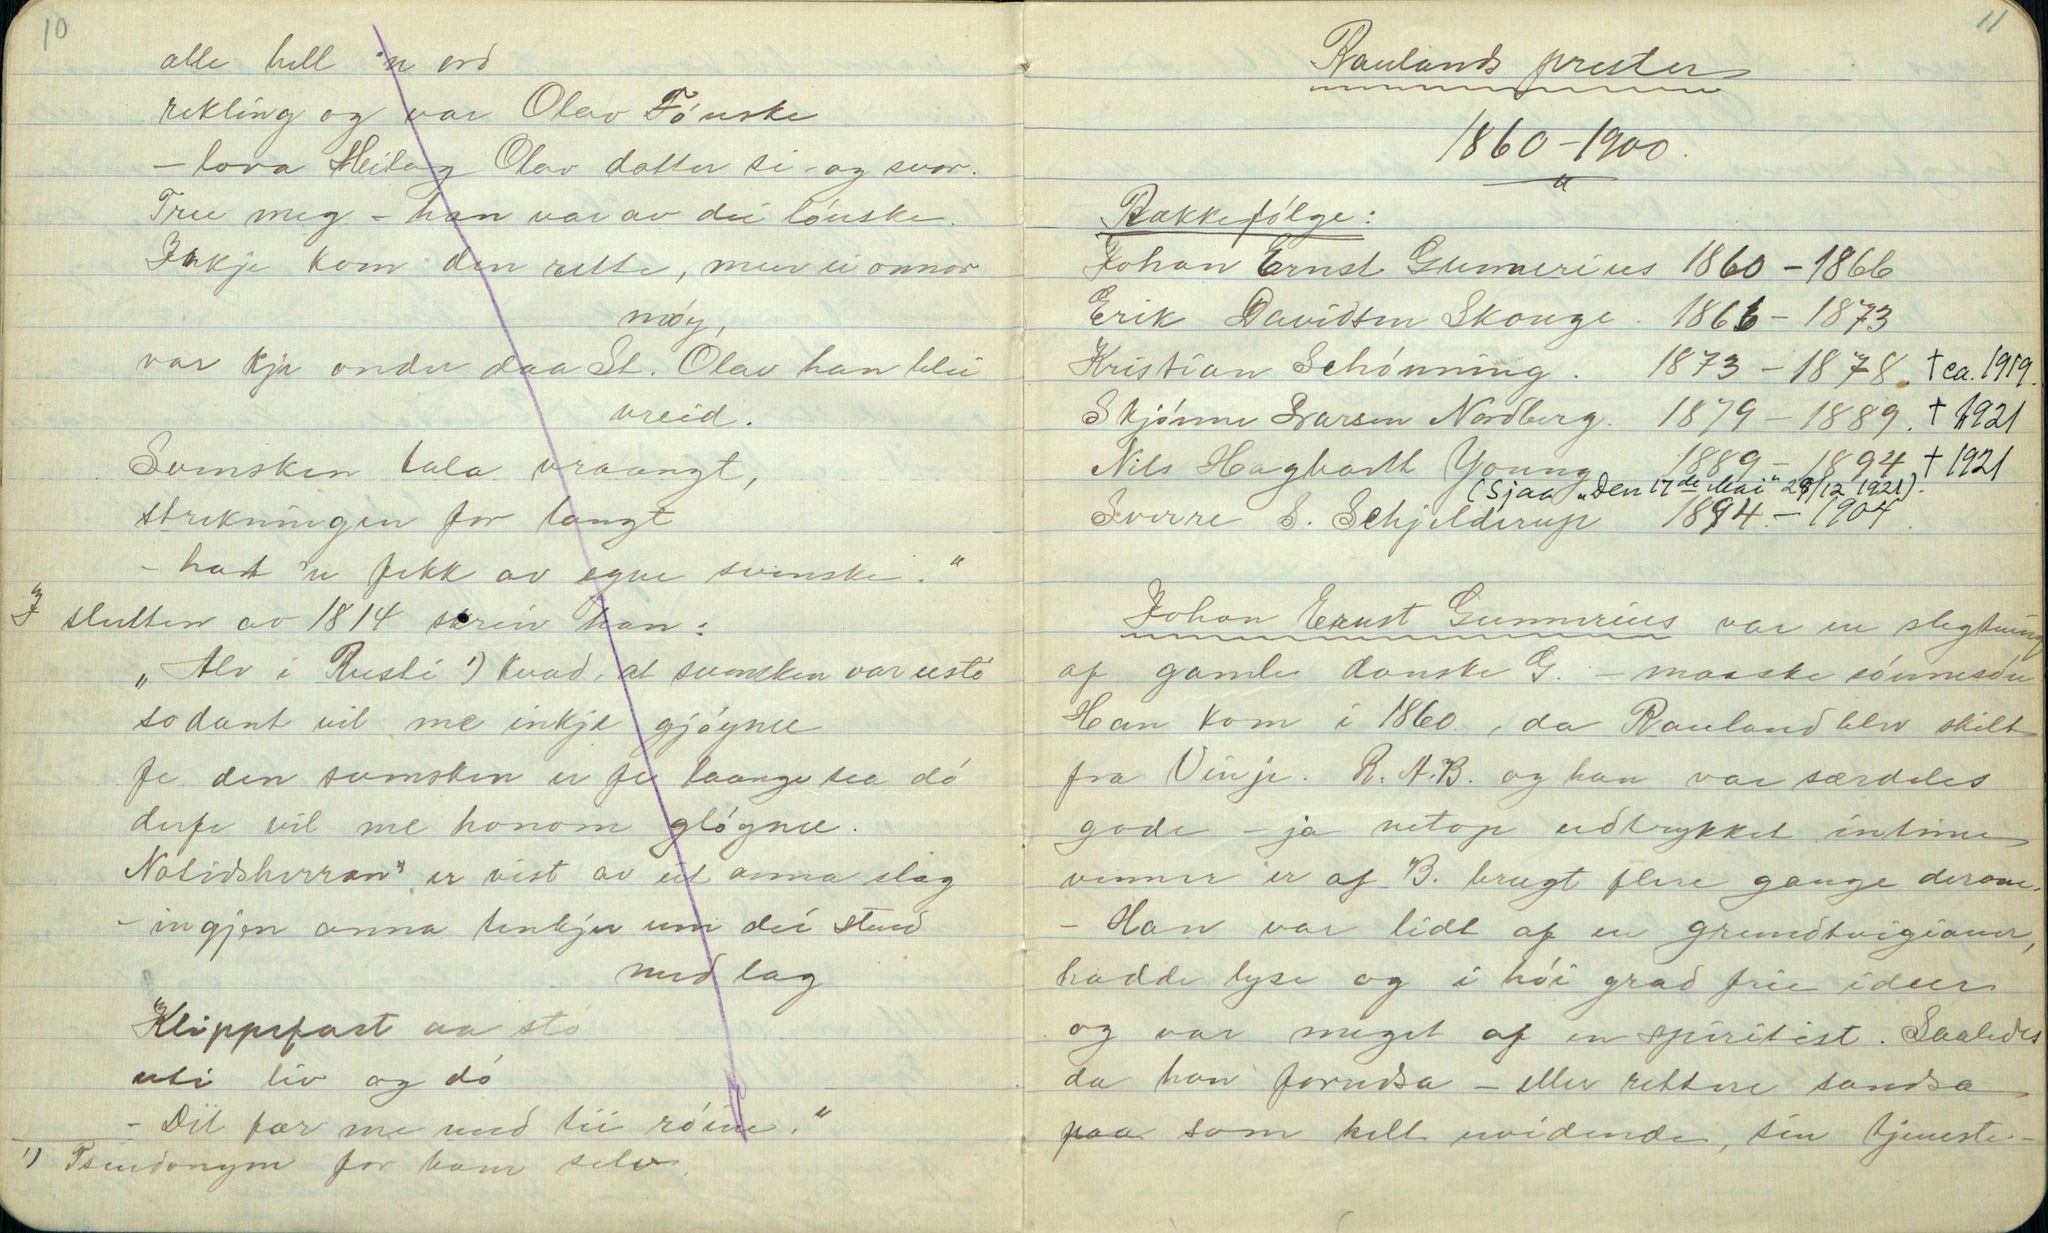 10
alle hell 'n ord
rekling og var Olav Fónske
– lova Heilag Olav dotter si – og svor.
Tru meg – han var av dei lónske.
Inkje kom den rette, men ei onnor
móy,
var kje onder daa St. Olav han blei
vreid.
Svensken tala vraangt,
strekningen for langt
– hat 'n fekk av egne svenske."
I slutten av 1814 skreiv han:
„Alv i Rusti 1) kvad, at svensken var ustó
sodant vil me inkje gjóyme
fe den svensken er fe laange sea dó
derfe vil me honom glóyme.
Notidsherran" er vist av eit anna slag
– ingjen anna tenkjer um dei stend
med lag
Klippefast aa stó
uti liv og dó
– Dit fær me med tii róine."
1) Pseudonym for ham selv.
11
Raulands prester
1860–1900.
"
Rækkefólge:
Johan Ernst Gunnerius 1860 – 1866
Erik Davidsen Skouge. 1866 – 1873
Kristian Schónning. 1873 – 1878. † ca. 1919.
Skjónne Larsen Nordberg. 1879 – 1889. † 1921
Nils Hagbarth Young 1889 – 1894 † 1921
(Sjaa „Den 17de Mai" 29/12 1921).
Sverre S. Schjelderup 1894 – 1904.
Johan Ernst Gunnerius var en slegtning
af gamle danske G. – maaske sónnesón
Han kom i 1860, da Rauland blev skilt
fra Vinje. R. A. B. og han var særdeles
gode – ja netop udtrykket intime
venner er af B. brugt flere gange derom.
– Han var lidt af en grundtvigianer,
hadde lyse og i hói grad frie ideer
og var meget af en spiritist. Saaledes
da han forudsa – eller rettere sandsa
paa som helt uvidende, sin tjeneste-